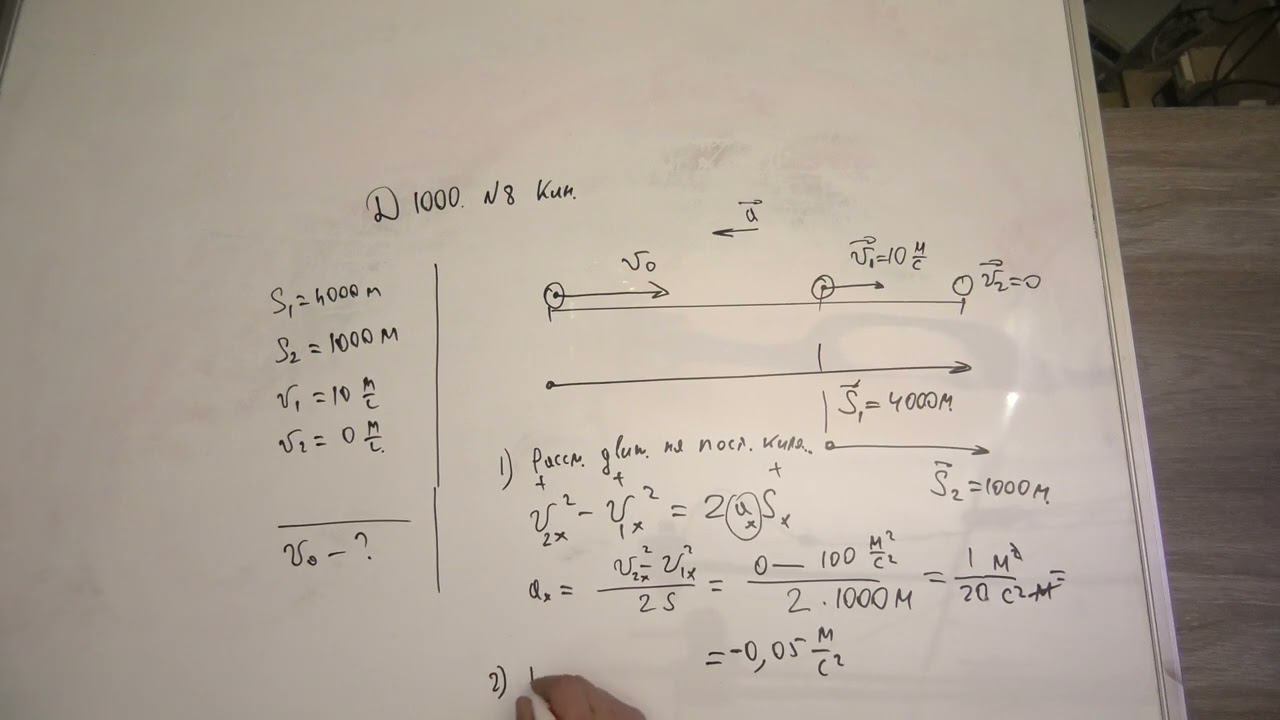 D 1000. N8 Кин.
S₁ = 4000 м
S₂ = 1000 м
v₁ = 10 м/с
v₂ = 0 м/с
v₀ - ?
a⃗
v₀
v⃗₁ = 10 м/с
v⃗₂ = 0
S⃗₁ = 4000 м
S⃗₂ = 1000 м
1) Рассм. движ. на посл. килм.
+ + +
v₂ₓ² - v₁ₓ² = 2 aₓ Sₓ
aₓ = (v₂ₓ² - v₁ₓ²) / 2S = (0 — 100 м²/с²) / (2 · 1000 м) = 1 м² / 20 с² м =
= -0,05 м/с²
2)